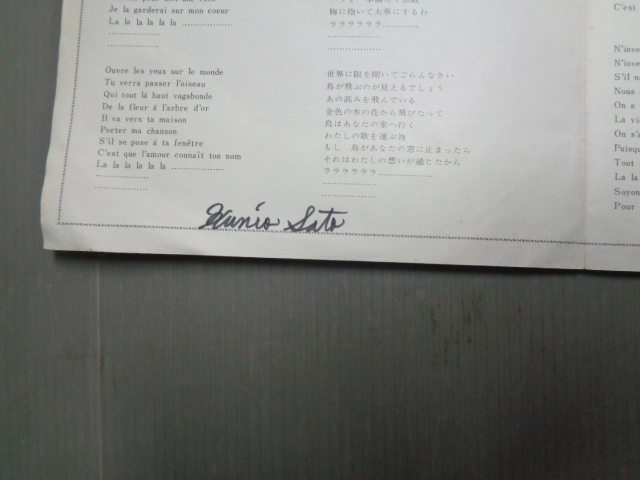 Je la garderai sur mon coeur
La la la la la ..................
..................
..................
Ouvre les yeux sur le monde
Tu verra passer l'oiseau
Qui tout là haut vagabonde
De la fleur á l'arbre d'or
Il va vers ta maison
Porter ma chanson
S'il se pose á ta fenêtre
C'est que l'amour connaît ton nom
La la la la la ..................
..................
..................
胸に抱いて大事にするわ
ラララララララ............
..................
..................
世界に眼を開いてごらんなさい
鳥が飛ぶのが見えるでしょう
あの高みを飛んでいる
金色の木の花から飛びたって
鳥はあなたの家へ行く
わたしの歌を運ぶ為
もし 鳥があなたの窓に止まったら
それはわたしの想いが通じたから
ラララララララ..................
..................
..................
C'est
N'inve
N'inve
S'il n
Nous
On a
La vi
On s'a
Puisqu
Tout
La la
Soyon
Pour
Kunio Sato